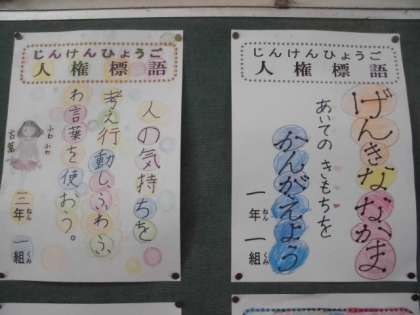 じんけんひょうご
人権標語
人の気持ちを
考え行動し、ふわふ
わ言葉を使おう。
ふわふわ
言葉
三年一組
ねん くみ
じんけんひょうご
人権標語
げんきななかま
あいての きもちを
かんがえよう
一年一組
ねん くみ